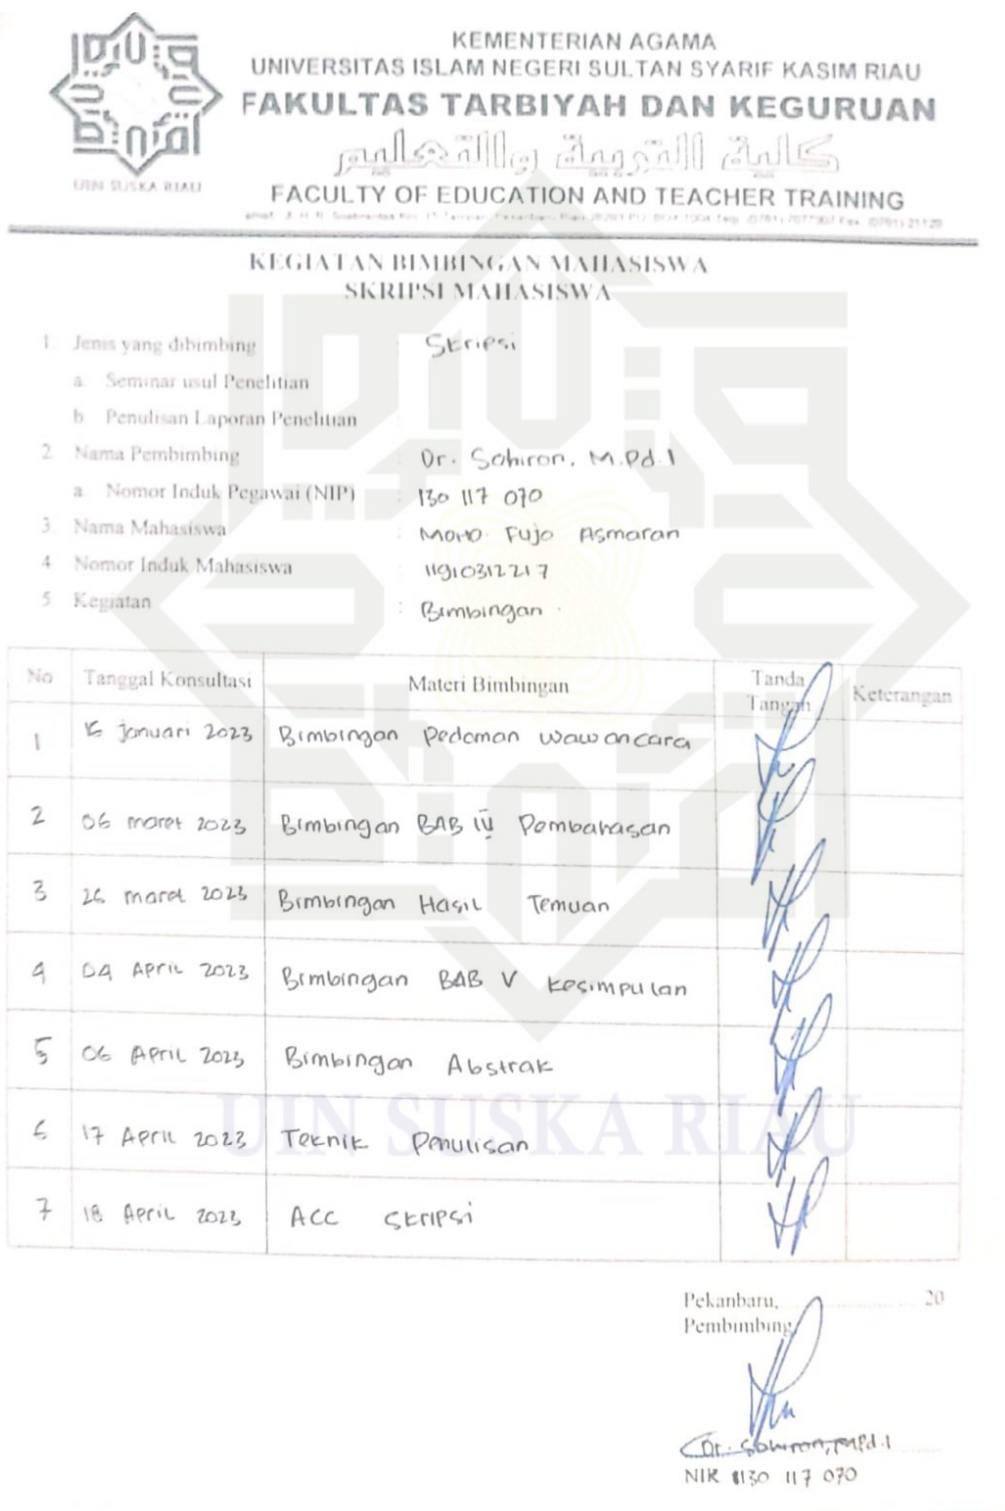 UIN SUSKA RIAU
KEMENTERIAN AGAMA
UNIVERSITAS ISLAM NEGERI SULTAN SYARIF KASIM RIAU
FAKULTAS TARBIYAH DAN KEGURUAN
كلية التربية والتعليم
FACULTY OF EDUCATION AND TEACHER TRAINING
KEGIATAN BIMBINGAN MAHASISWA
SKRIPSI MAHASISWA
1. Jenis yang dibimbing : Skripsi
a. Seminar usul Penelitian
b. Penulisan Laporan Penelitian
2. Nama Pembimbing : Dr. Sohiron, M.Pd.I
a. Nomor Induk Pegawai (NIP) : 130 117 070
3. Nama Mahasiswa : MOHD. Fujo Asmaran
4. Nomor Induk Mahasiswa 11910312217
5. Kegiatan : Bimbingan
No Tanggal Konsultasi Materi Bimbingan Tanda Tangan Keterangan
1 januari 2023 Bimbingan Pedoman wawancara
2 06 maret 2023 Bimbingan BAB IV Pembahasan
3 26 maret 2023 Bimbingan Hasil Temuan
4 04 April 2023 Bimbingan BAB V Kesimpulan
5 06 April 2023 Bimbingan Abstrak
6 17 April 2023 Teknik Penulisan
7 18 April 2023 ACC Skripsi
UIN SUSKA RIAU
Pekanbaru, 20
Pembimbing
Dr. Sohiron, M.Pd.I
NIK 130 117 070